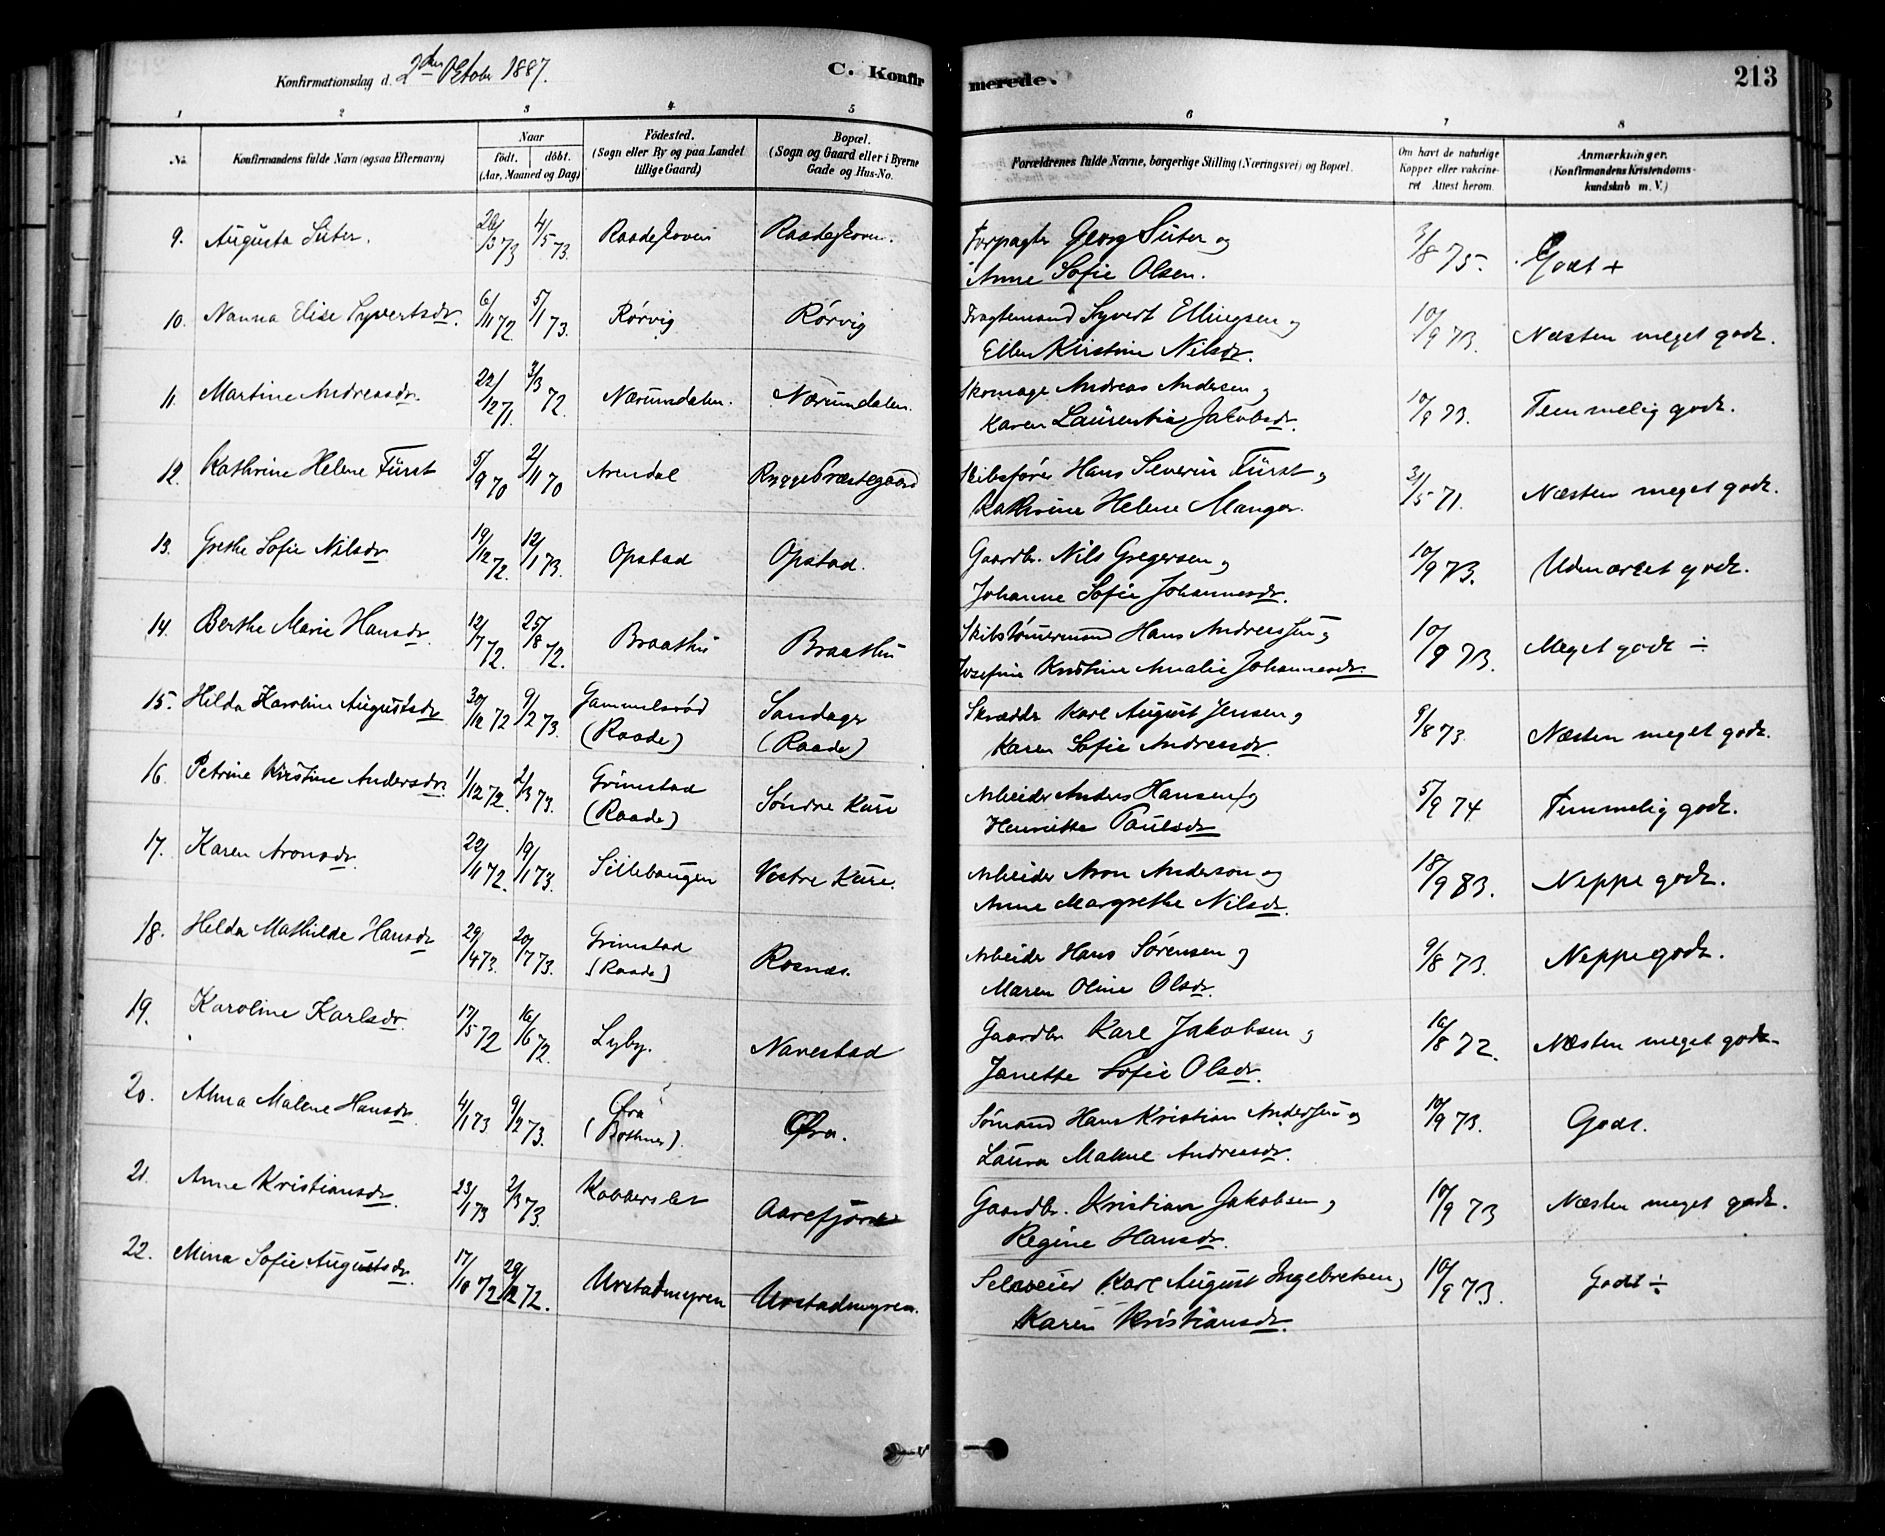 Konfirmationsdag d. 2den Oktober 1887.
C. Konfirmerede.
213
1 2 3 4 5 6 7 8
No. Konfirmandens fulde Navn (ogsaa Efternavn) Naar födt. döbt. (Aar, Maaned og Dag) Födested. (Sogn eller By og paa Landet tillige Gaard) Bopæl. (Sogn og Gaard eller i Byerne Gade og Hus-No. Forældrenes fulde Navne, borgerlige Stilling (Næringsvei) og Bopæl. Om havt de naturlige Kopper eller vakcineret Attest herom. Anmærkninger. (Konfirmandens Kristendomskundskab m. V.)
9. Augusta Süter. 28/3 73 4/5 73. Raadeskoven Raadeskoven. Forpagter Georg Süter og 3/8 75. Godt +
Anne Sofie Olsen.
10. Nanna Elise Syvertsdr. 6/11 72. 5/1 73. Rørvig Rørvig Fragtemand Syvert Ellingsen og 10/9 73. Næsten meget godt.
Ellen Kirstine Nilsdr.
11. Martine Andreasdr. 22/12 71. 3/3 72. Nærumsdalen. Nærumdalen. Skomager Andreas Andersen og 10/9 73. Temmelig godt.
Karen Laurentia Jakobsdr.
12. Kathrine Helene Fürst 5/9 70 2/11 70 Arendal Ryggepræstegaard Skibsfører Hans Severin Fürst og 31/5 71. Næsten meget godt.
Kathrine Helene Manger.
13. Grethe Sofie Nilsdr. 19/12 72. 12/1 73. Opstad Opstad. Gaardbr. Nils Gregersen og 10/9 73. Udmærket godt.
Johanne Sofie Johannesdr.
14. Berthe Marie Hansdr. 12/7 72. 25/8 72. Braathu Braathu Skibstømermand Hans Andreassen og 10/9 73. Meget godt ÷
Josefine Kristine Amalie Johannesdr.
15. Hilda Karoline Augustsdr 30/12 72 9/2 73. Gammelsrød (Raade) Sandager (Raade) Skrædder Karl August Jensen og 9/8 73. Næsten meget godt.
Karen Sofie Andreasdr.
16. Petrine Kristine Andersdr. 1/12 72. 2/3 73. Grimestad (Raade) Søndre Kure Arbeider Anders Hansen og 5/9 74 Temmelig godt.
Henriette Paulsdr
17. Karen Aronsdr. 22/11 72. 19/1 73. Sillebaugen Vestre Kure. Arbeider Aron Anderson og 18/9 83. Neppe godt.
Anne Margrethe Nilsdr.
18. Helda Mathilde Hansdr 29/4 73. 20/7 73. Grimstad (Raade) Rosnæs. Arbeider Hans Sørensen og 9/8 73. Neppe godt.
Maren Oline Olsdr.
19. Karoline Karlsdr. 17/5 72 16/6 72. Lyby. Navestad Gaardbr Karl Jakobsen og 16/8 72. Næsten meget godt.
Janette Sofie Olsdr.
20. Alma Malene Hansdr. 4/1 73 9/2 73. Øra (Bothner). Øra. Sømand Hans Kristian Anderssen og 10/9 73. Godt.
Laura Malene Andreasdr.
21. Anne Kristiansdr. 23/1 73 2/3 73. Kabberslet Aarefjord Gaardbr. Kristian Jakobsen og 10/9 73 Næsten meget godt.
Regine Hansdr.
22. Mina Sofie Augustsdr. 17/10 72 29/12 72. Urstadmyren Urstadmyren. Selveier Karl August Ingebretsen og 10/9 73. Godt ÷
Karen Kristiansdr.